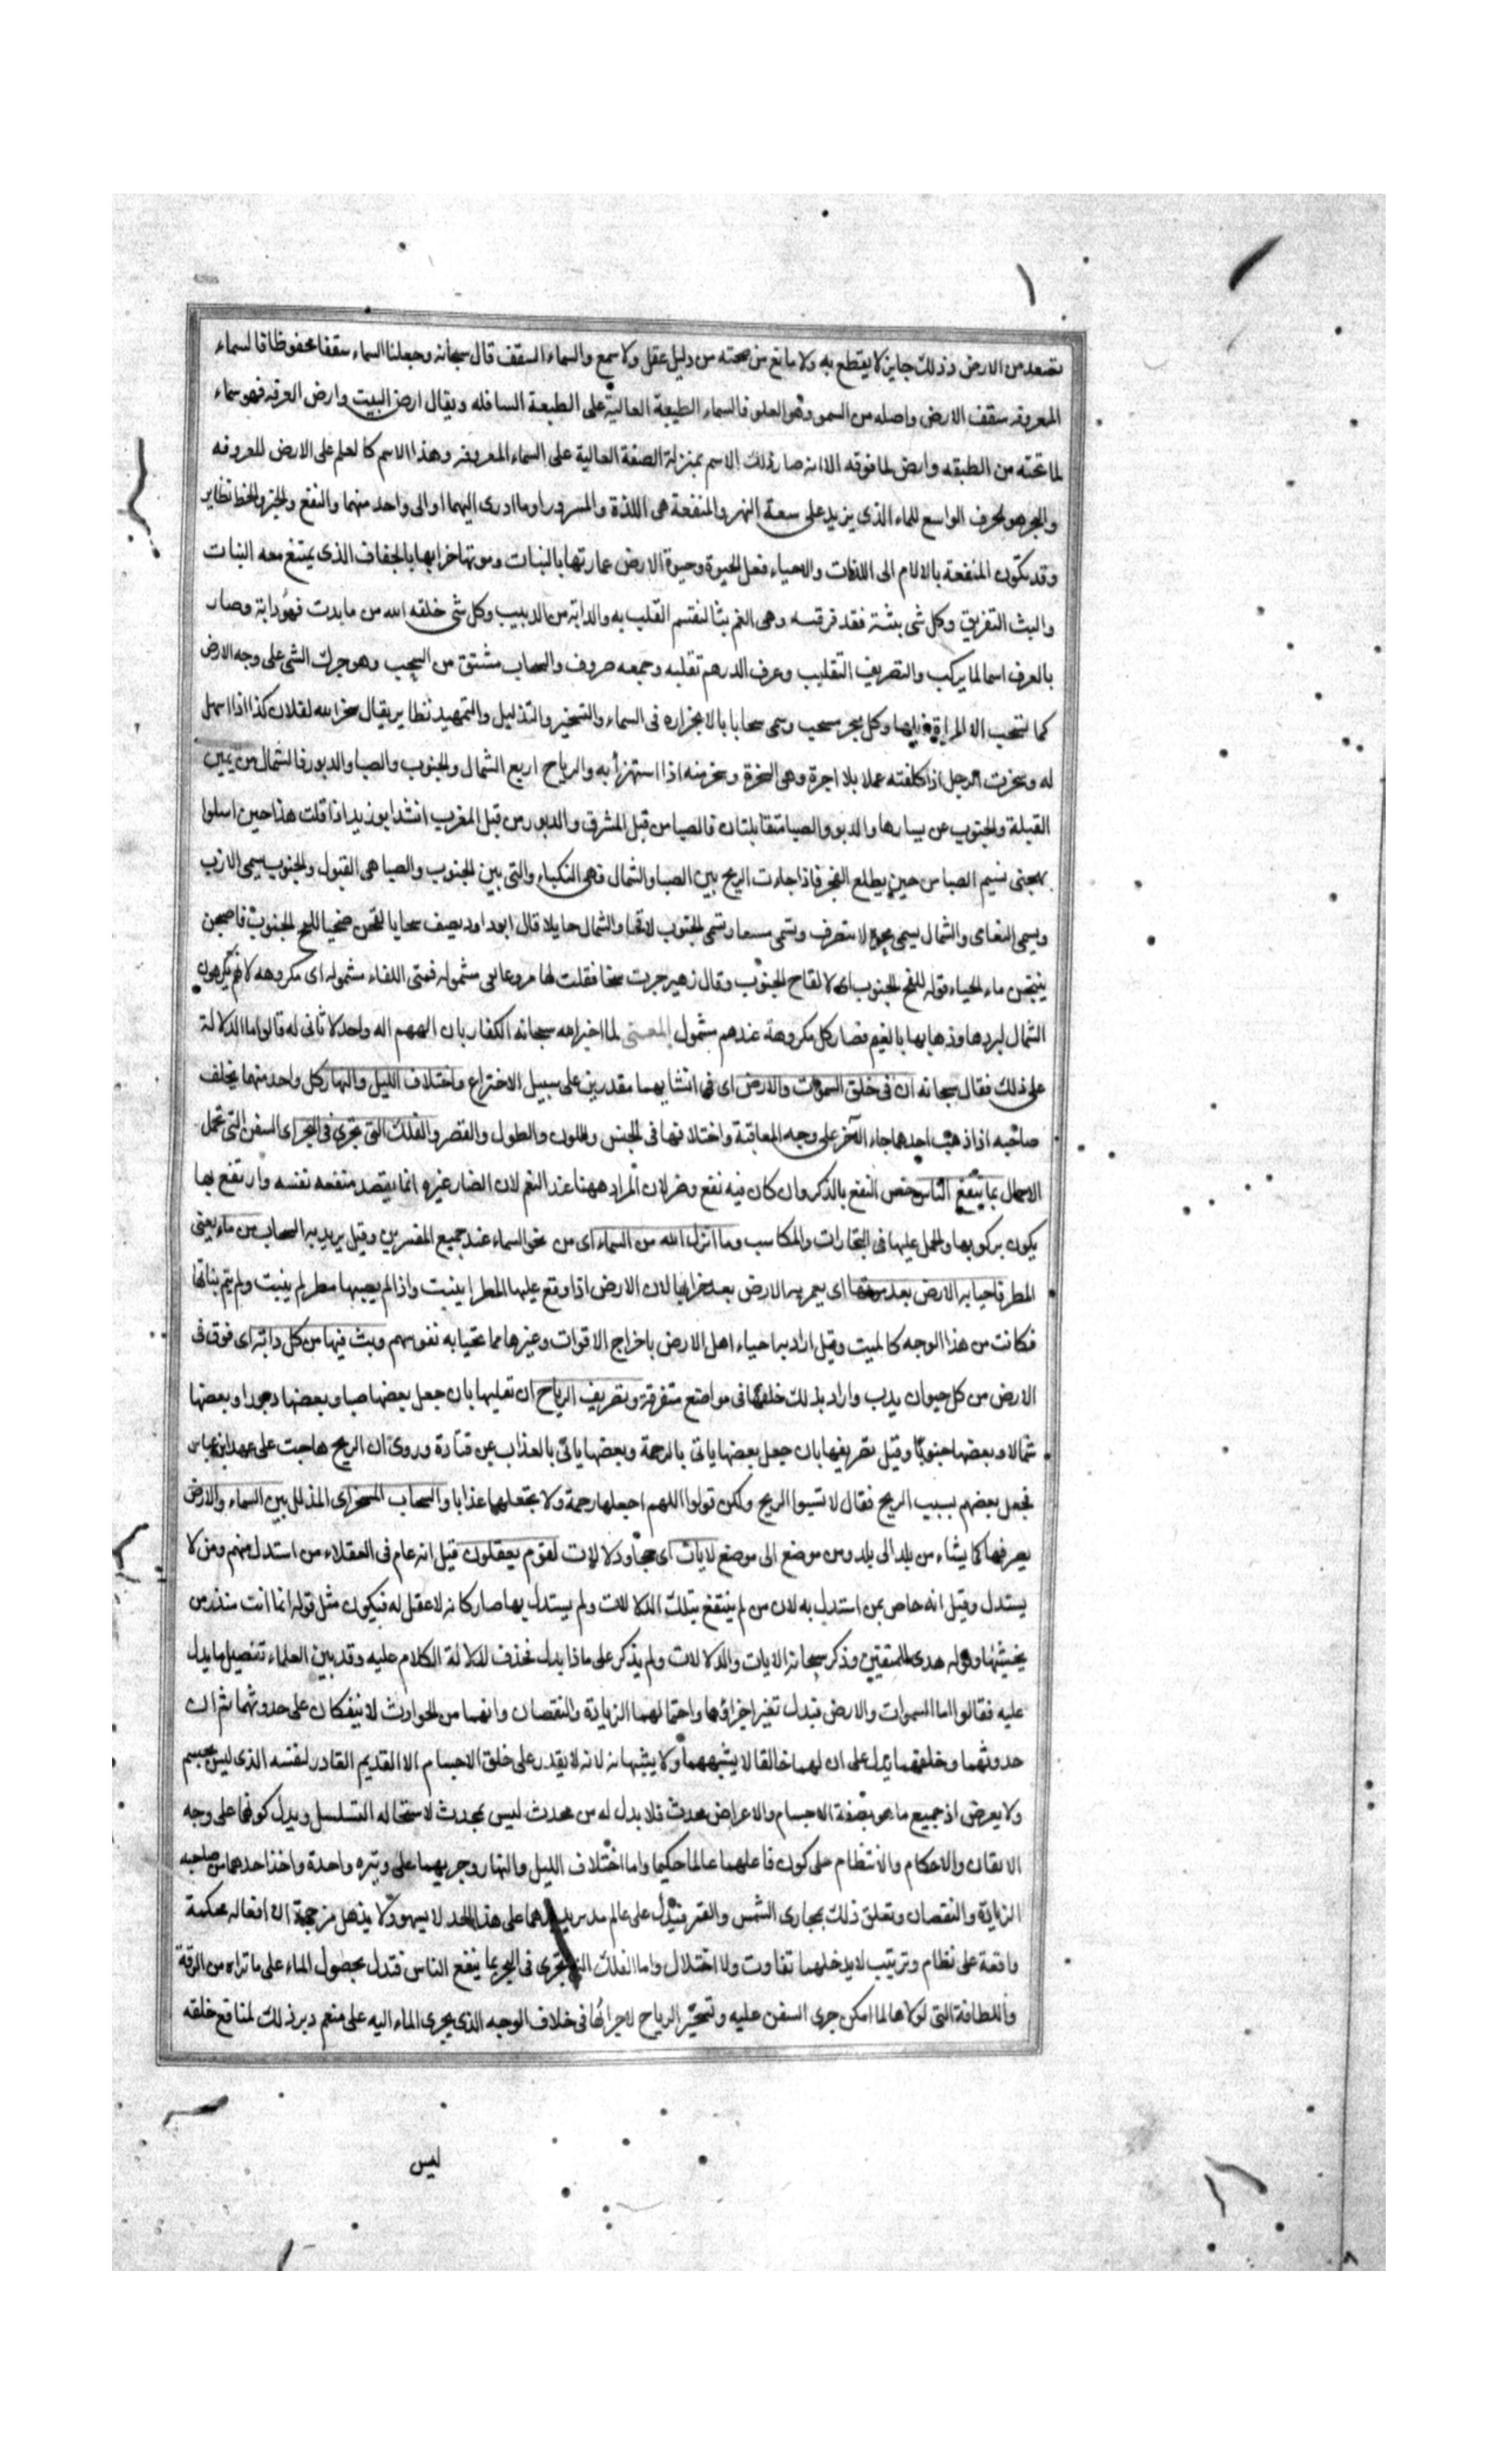 تصعد من الارض وذلك جايز لا يقطع به ولا مانع من صحته من دليل عقل ولا سمع والسماء السقف قال سبحانه وجعلنا السماء سقفا محفوظا فالسماء
المعروفة سقف الارض واصله من السمو وهو العلو فالسماء الطبيعة العالية على الطبعة السافله ويقال ارض البيت وارض الغرفة فهو سماء
لما تحته من الطبقه وارض لما فوقه الا انه صار ذلك الاسم بمنزلة الصفة العالية على السماء المعروفة وهذا الاسم كالعلم على الارض المعروفه
والبحر هو الخرف الواسع للماء الذي يزيد على سعة النهر والمنفعة هى اللذة والسرور او ما ادى اليهما او الى واحد منهما والنفع والخير والحظ نظاير
وقد تكون المنفعة بالالام الى اللذات والاحياء فعل الحيوة وحيوة الارض عمارتها بالنبات وموتها خرابها بالجفاف الذي يمتنع معه النبات
والبث التفريق وكل شى بثثته فقد فرقته وهى الغم بثا لتقسم القلب به والدابة من الدبيب وكل شى خلقه الله من ما يدب فهو دابة وصار
بالعرف اسما لما يركب والتصريف التقليب وصرف الدرهم تقلبه وجمعه صروف والسحاب مشتق من السحب وهو جرك الشى على وجه الارض
كما تسحب المراة ذيلها وكل منجر منسحب وسمى سحابا بالانجراره فى السماء والتسخير والتذليل والتمهيد نظاير يقال سخر الله لفلان كذا اذا سهل
له وسخرت الرجل اذا كلفته عملا بلا اجرة وهى السخرة وسخر منه اذا استهزأ به والرياح اربع الشمال والجنوب والصبا والدبور فالشمال من يمين
القبلة والجنوب عن يسارها والدبور والصبا متقابلتان فالصبا من قبل المشرق والدبور من قبل المغرب انشد ابو زيد اذا قلت هذا حين اسلوا
يهيجنى نسيم الصبا من حين يطلع الفجر فاذا جاءت الريح بين الصبا والشمال فهى النكباء والتى بين الجنوب والصبا هى القبول والجنوب يسمى الازيب
ويسمى النعامى والشمال يسمى محوة لا تصرف وتسمى مسعا وتسمى الجنوب لاقحا والشمال حايلا قال ابو داود يصف سحابا لقحن ضحيا للقح الجنوب فاصبحن
ينتجن ماء الحياء قوله للقح الجنوب اى لالقاح الجنوب وقال زهير جرت سخا فقلت لها مروعا نوى مشمولة فمتى اللقاء مشمولة اى مكروهه لانهم يكرهون
الشمال لبردها وذهابها بالغيم فصار كل مكروهة عندهم مشمول المعنى لما اخبر الله سبحانه الكفار بان الههم اله واحد لا ثانى له قالوا ما الدلالة
على ذلك فقال سبحانه ان فى خلق السموات والارض اى فى انشايهما مقدرين على سبيل الاختراع واختلاف الليل والنهار كل واحد منهما يخلف
صاحبه اذا ذهب احدهما جاء الآخر على وجه المعاقبة واختلافهما فى الجنس واللون والطول والقصر والفلك التى تجرى فى البحر اى السفن التى تحمل
الاحمال بما ينفع الناس خص النفع بالذكر وان كان فيه نفع وضر لان المراد ههنا عند النعم لان الضار غيره انما يقصد منفعه نفسه وا ينتفع بها
يكون بركوبها والحمل عليها فى التجارات والمكاسب وما انزل الله من السماء اى من نحو السماء عند جميع المفسرين وقيل يريد به السحاب من ماء يعنى
المطر فاحيا به الارض بعد موتها اى يعمر به الارض بعد خرابها لان الارض اذا وقع عليها المطر انبت واذا لم يصبها مطر لم ينبت ولم يتم نباتها
فكانت من هذا الوجه كالميت وقيل اراد به احياء اهل الارض باخراج الاقوات وغيرها مما تحيا به نفوسهم وبث فيها من كل دابة اى فرق فى
الارض من كل حيوان يدب واراد بذلك خلقها فى مواضع متفرقة وتصريف الرياح ان تقليبها بان جعل بعضها صبا وبعضها دبورا وبعضها
شمالا وبعضها جنوبا وقيل تصريفها بان جعل بعضها ياتى بالرحمة وبعضها ياتى بالعذاب عن قتادة وروى ان الريح هاجت على عهد ابن عباس
فجعل بعضهم يسب الريح فقال لا تسبوا الريح ولكن قولوا اللهم اجعلها رحمة ولا تجعلها عذابا والسحاب المسخر اى المذلل بين السماء والارض
يصرفها كما يشاء من بلد الى بلد ومن موضع الى موضع لايات اى حججا ودلالات لقوم يعقلون قيل انه عام فى العقلاء من استدل منهم ومن لا
يستدل وقيل انه خاص بمن استدل به لان من لم ينتفع بتلك الدلالات ولم يستدل بها صار كانه لا عقل له فيكون مثل قوله انما انت منذر من
يخشيها وقوله هدى للمتقين وذكر سبحانه الايات والدلالات ولم يذكر على ماذا يدل فحذف لدلالة الكلام عليه وقد بين العلماء تفصيل ما يدل
عليه فقالوا اما السموات والارض فيدل تغير اجزاؤهما واحتمالهما الزيادة والنقصان وانهما من الحوادث لا ينفكان على حدوثهما ثم ان
حدوثهما وخلقهما يدل على ان لهما خالقا لا يشبههما ولا يشبهانه لانه لا يقدر على خلق الاجسام الا القديم القادر لنفسه الذى ليس بجسم
ولا بعرض اذ جميع ما هو بصفة الاجسام والاعراض محدث فلا بد له من محدث ليس بمحدث لاستحاله التسلسل ويدل كونهما على وجه
الاتقان والاحكام والانتظام على كون فاعلهما عالما حكيما واما اختلاف الليل والنهار وجريهما على وتيره واحدة واخذ احدهما من صاحبه
الزيادة والنقصان وتعلق ذلك بمجارى الشمس والقمر فيدل على عالم مدبر يدبرهما على هذا الحد لا يسهو ولا يذهل من جهة ان افعاله محكمة
واقعة على نظام وترتيب لا يدخلهما تفاوت ولا اختلال واما الفلك التى تجرى فى البحر بما ينفع الناس فتدل بحصول الماء على ما تراه من الرقة
واللطافة التى لولاها لما امكن جرى السفن عليه وتسخير الرياح لاجرائها فى خلاف الوجه الذى يجرى الماء اليه على منعم دبر ذلك لمنافع خلقه
ليس